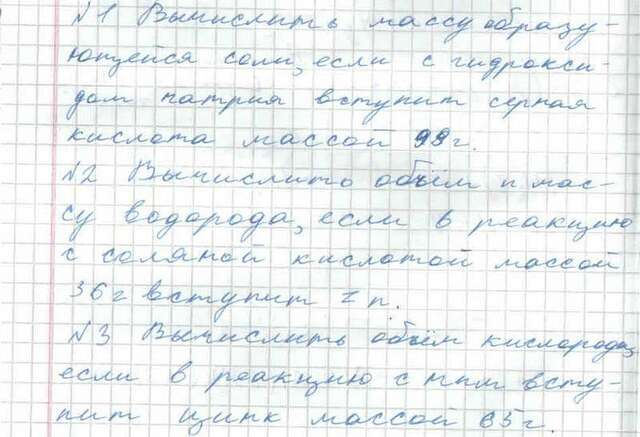 №1 Вычислить массу образу-
ющейся соли, если с гидрокси-
дом натрия вступит серная
кислота массой 98г.
№2 Вычислить объём и мас-
су водорода, если в реакцию
с соляной кислотой массой
36г вступит Zn.
№3 Вычислить объём кислорода,
если в реакцию с ним всту-
пит цинк массой 65г.